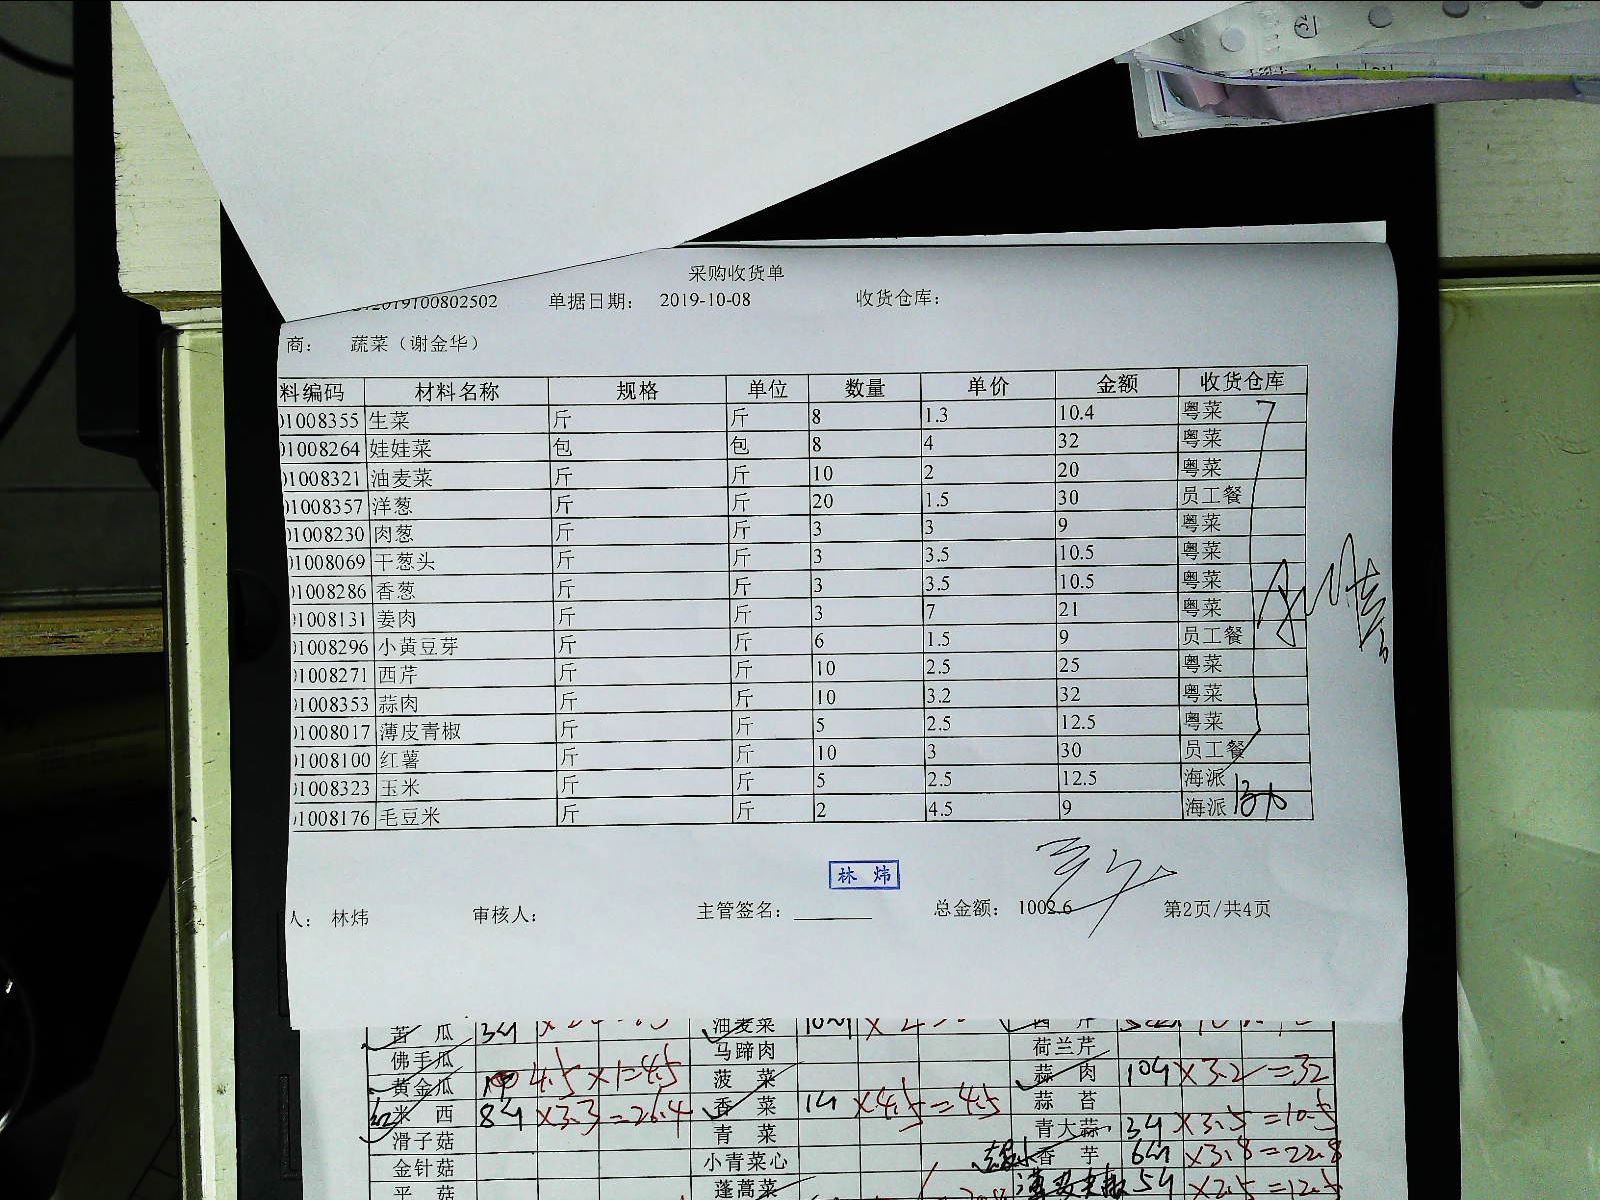 采购收货单
2019100802502 单据日期： 2019-10-08 收货仓库：
商： 蔬菜（谢金华）
料编码 材料名称 规格 单位 数量 单价 金额 收货仓库
01008355 生菜 斤 斤 8 1.3 10.4 粤菜
01008264 娃娃菜 包 包 8 4 32 粤菜
01008321 油麦菜 斤 斤 10 2 20 粤菜
01008357 洋葱 斤 斤 20 1.5 30 员工餐
01008230 肉葱 斤 斤 3 3 9 粤菜
01008069 干葱头 斤 斤 3 3.5 10.5 粤菜
01008286 香葱 斤 斤 3 3.5 10.5 粤菜
01008131 姜肉 斤 斤 3 7 21 粤菜
01008296 小黄豆芽 斤 斤 6 1.5 9 员工餐
01008271 西芹 斤 斤 10 2.5 25 粤菜
01008353 蒜肉 斤 斤 10 3.2 32 粤菜
01008017 薄皮青椒 斤 斤 5 2.5 12.5 粤菜
01008100 红薯 斤 斤 10 3 30 员工餐
01008323 玉米 斤 斤 5 2.5 12.5 海派
01008176 毛豆米 斤 斤 2 4.5 9 海派
林 炜
人： 林炜 审核人： 主管签名： 总金额： 1002.6 第2页/共4页
苦 瓜 3斤 油麦菜 10斤 西 芹
佛手瓜 马蹄肉 荷兰芹
黄金瓜 4.5×1=4.5 菠 菜 蒜 肉 10斤 ×3.2=32
米 西 8斤 ×3.3=26.4 香 菜 1斤 ×4.5=4.5 蒜 苔
滑子菇 青 菜 青大蒜 3斤 ×3.5=10.5
金针菇 小青菜心 香 芋 6斤 ×3.8=22.8
平 菇 蓬蒿菜 5斤 ×2.5=12.5